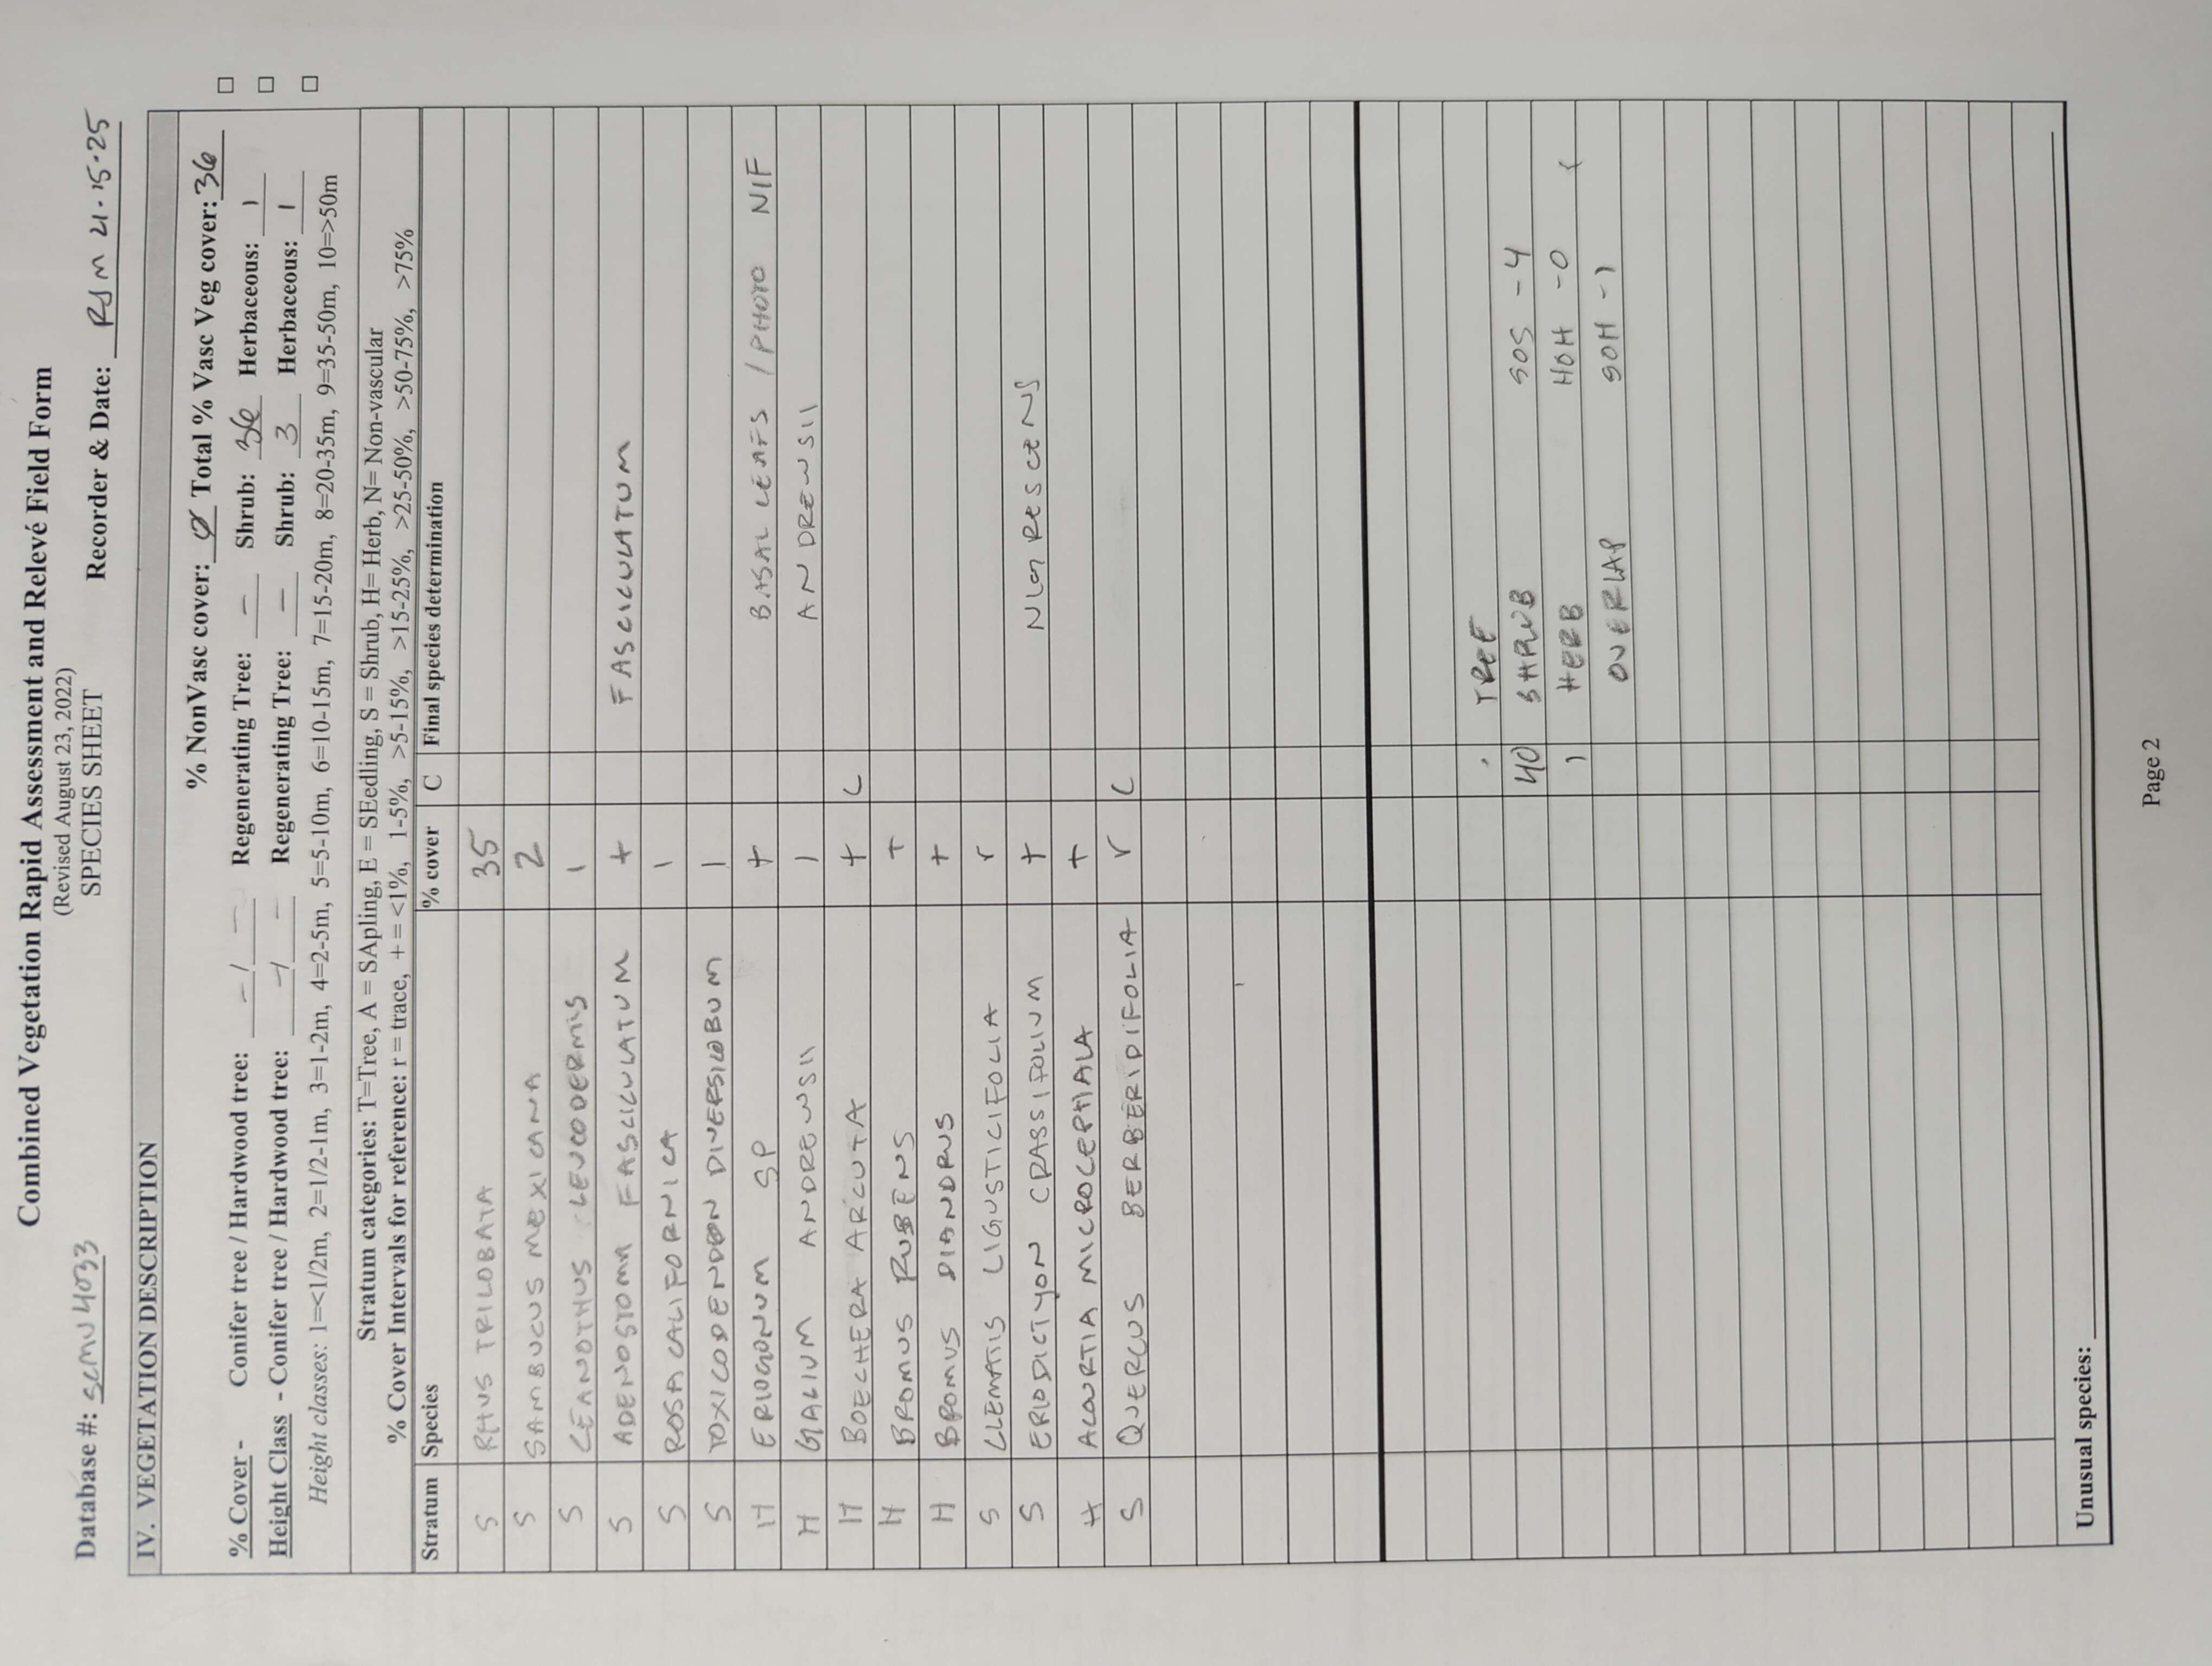 Combined Vegetation Rapid Assessment and Relevé Field Form
(Revised August 23, 2022)
SPECIES SHEET
Database #: SCMU4033 Recorder & Date: RJM 21.15.25
IV. VEGETATION DESCRIPTION
% NonVasc cover: Ø Total % Vasc Veg cover: 36 □
% Cover - Conifer tree / Hardwood tree: - / - Regenerating Tree: - Shrub: 36 Herbaceous: 1 □
Height Class - Conifer tree / Hardwood tree: - / - Regenerating Tree: - Shrub: 3 Herbaceous: 1 □
Height classes: 1=<1/2m, 2=1/2-1m, 3=1-2m, 4=2-5m, 5=5-10m, 6=10-15m, 7=15-20m, 8=20-35m, 9=35-50m, 10=>50m
Stratum categories: T=Tree, A = SApling, E = SEedling, S = Shrub, H= Herb, N= Non-vascular
% Cover Intervals for reference: r = trace, + = <1%, 1-5%, >5-15%, >15-25%, >25-50%, >50-75%, >75%
Stratum Species % cover C Final species determination
S RHUS TRILOBATA 35
S SAMBUCUS MEXICANA 2
S CEANOTHUS LEUCODERMIS 1
S ADENOSTOMA FASCICULATUM + FASCICULATUM
S ROSA CALIFORNICA 1
S TOXICODENDRON DIVERSILOBUM 1
H ERIOGONUM SP + BASAL LEAFS / PHOTO NIF
H GALIUM ANDREWSII 1 ANDREWSII
H BOECHERA ARCUTA + C
H BROMUS RUBENS +
H BROMUS DIANDRUS +
S CLEMATIS LIGUSTICIFOLIA r
S ERIODICTYON CRASSIFOLIUM + NIGRESCENS
H ACOURTIA MICROCEPHALA +
S QUERCUS BERBERIDIFOLIA r C
· TREE
40 SHRUB SOS - 4
1 HERB HOH - 0
OVERLAP SOH - 1
Unusual species:
Page 2